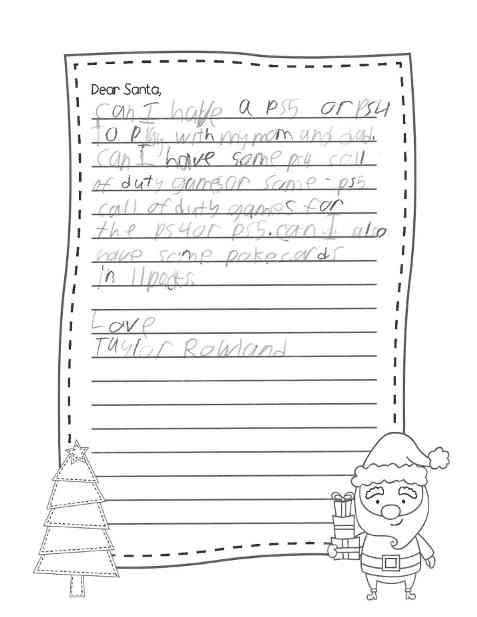 Dear Santa,
can I have a ps5 or ps4
To play with my mom and dad.
can I have some ps4 call
of duty games or some - ps5
call of duty games for
the ps4 or ps5. can I also
have some pokecards
in 11 packs.
Love
Taylor Rowland